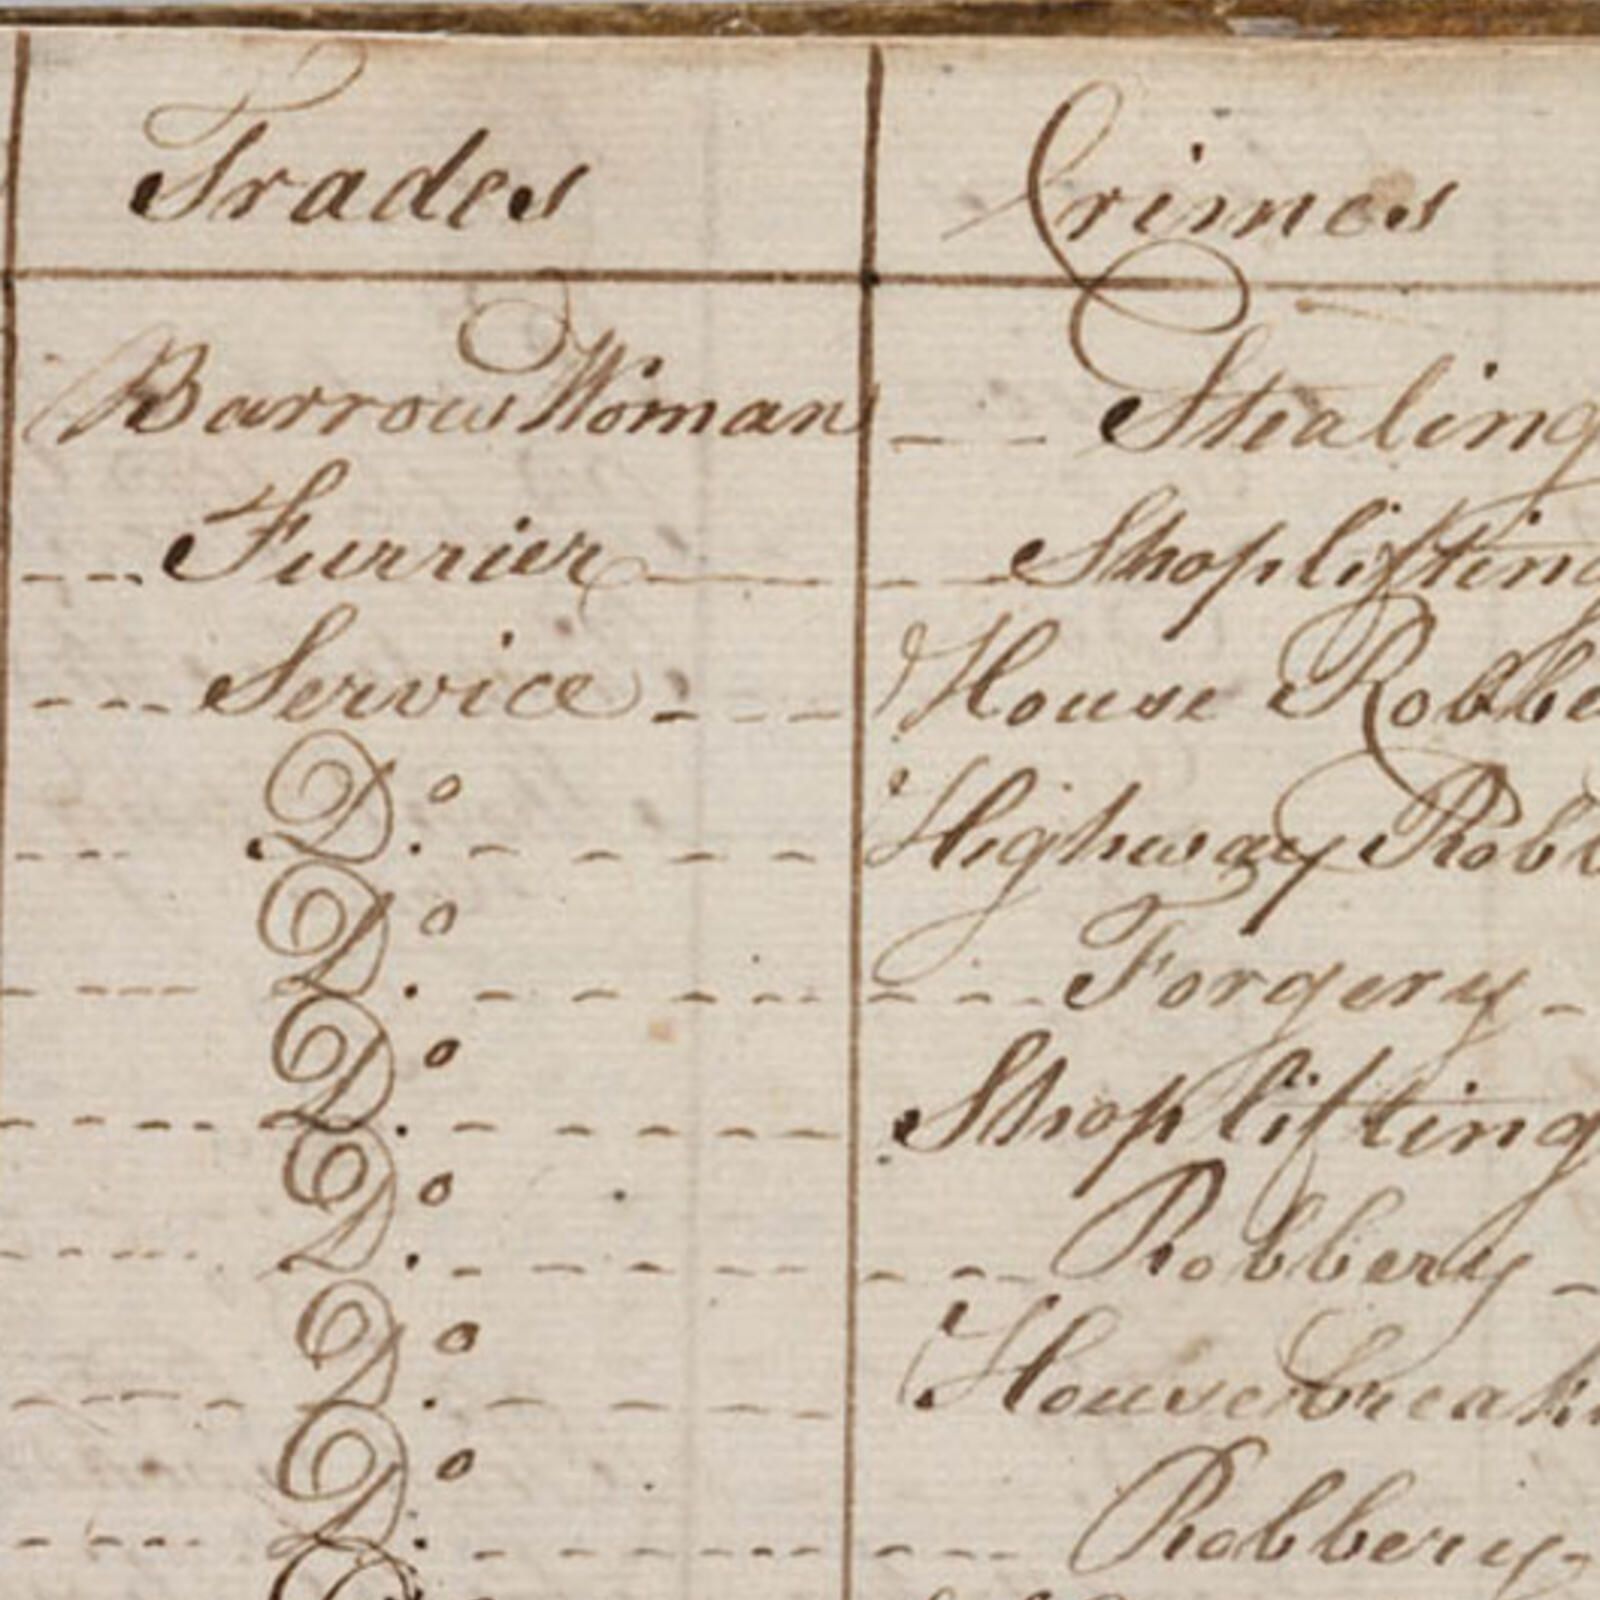 Trades Crimes
Barrow Woman Stealing
Furrier Shoplifting
Service House Robbe
Do. Highway Robb
Do. Forgery
Do. Shoplifting
Do. Robbery
Do. Housebreak
Do. Robbery